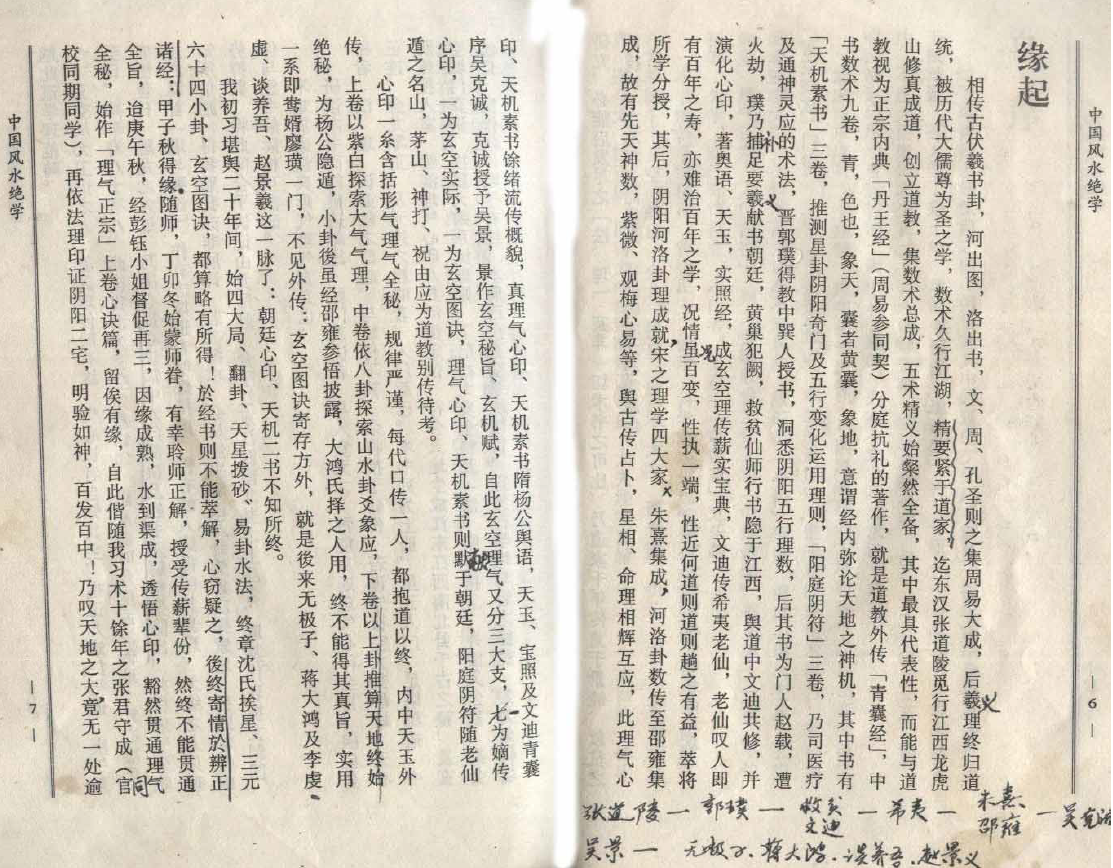 中国风水绝学
— 6 —
缘起
相传古伏羲书卦,河出图,洛出书,文、周、孔圣则之集周易大成,后羲理终归道
统,被历代大儒尊为圣之学,数术久行江湖,精要紧于道家,迄东汉张道陵觅行江西龙虎
山修真成道,创立道教,集数术总成,五术精义始粲然全备,其中最具代表性,而能与道
教视为正宗内典「丹王经」(周易参同契)分庭抗礼的著作,就是道教外传「青囊经」,中
书数术九卷,青,色也,象天,囊者黄囊,象地,意谓经内弥论天地之神机,其中书有
「天机素书」三卷,推测星卦阴阳奇门及五行变化运用理则,「阳庭阴符」三卷,乃司医疗
及通神灵应的术法,晋郭璞得教中巽人授书,洞悉阴阳五行理数,后其书为门人赵载,遭
火劫,璞乃捕足要羲献书朝廷,黄巢犯阙,救贫仙师行书隐于江西,舆道中文迪共修,并
演化心印,著奥语、天玉,实照经,成玄空理传薪实宝典,文迪传希夷老仙,老仙叹人即
有百年之寿,亦难治百年之学,况情虽百变,性执一端,性近何道则道则趟之有益,萃将
所学分授,其后,阴阳河洛卦理成就宋之理学四大家,朱熹集成,河洛卦数传至邵雍集
成,故有先天神数,紫微、观梅心易等,舆古传占卜,星相、命理相辉互应,此理气心
补
义
况
义
张道陵一郭璞一救贫文迪一希夷一朱熹邵雍一吴克诚
吴景一无极子、蒋大鸿、谈养吾、赵景义
印、天机素书馀绪流传概貌,真理气心印、天机素书隋杨公舆语,天玉、宝照及文迪青囊
序吴克诚,克诚授予吴景,景作玄空秘旨、玄机赋,自此玄空理气又分三大支,七为嫡传
心印,一为玄空实际,一为玄空图诀,理气心印、天机素书则默于朝廷,阳庭阴符随老仙
遁之名山,茅山、神打、祝由应为道教别传待考。
心印一糸含括形气理气全秘,规律严谨,每代口传一人,都抱道以终,内中天玉外
传,上卷以紫白探索大气气理,中卷依八卦探索山水卦爻象应,下卷以上卦推算天地终始
绝秘,为杨公隐遁,小卦後虽经邵雍参悟披露,大鸿氏择之人用,终不能得其真旨,实用
一系即鸶婿廖璜一门,不见外传:玄空图诀寄存方外,就是後来无极子、蒋大鸿及李虔
虚、谈养吾、赵景羲这一脉了:朝廷心印、天机二书不知所终。
我初习堪舆二十年间,始四大局、翻卦、天星拨砂、易卦水法,终章沈氏挨星、三元
六十四小卦、玄空图诀,都算略有所得!於经书则不能萃解,心窃疑之,後终寄情於辨正
诸经:甲子秋得缘随师,丁卯冬始蒙师眷,有幸聆师正解,授受传薪辈份,然终不能贯通
全旨,迨庚午秋,经彭钰小姐督促再三,因缘成熟,水到渠成,透悟心印,豁然贯通理气
全秘,始作「理气正宗」上卷心诀篇,留俟有缘,自此偕随我习术十馀年之张君守成(官
校同期同学),再依法理印证阴阳二宅,明验如神,百发百中!乃叹天地之大竟无一处逾
同
中国风水绝学
— 7 —